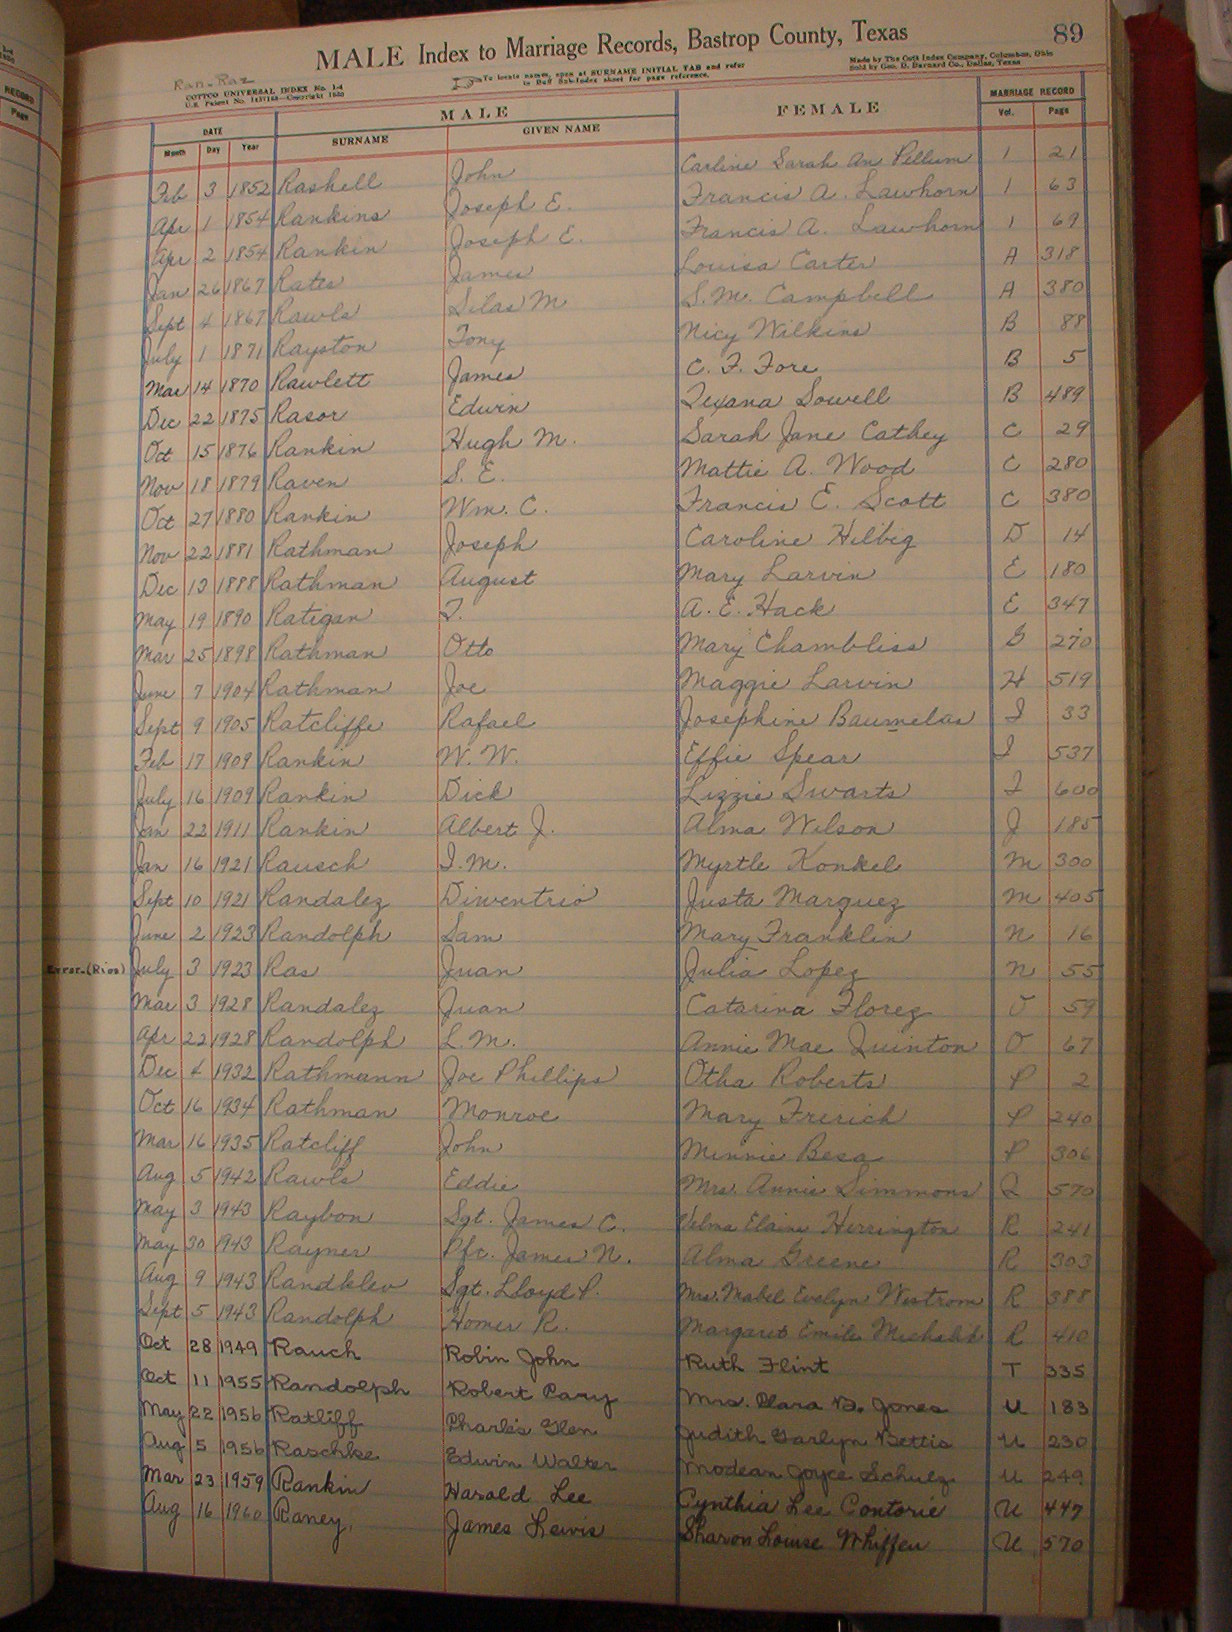 89
MALE Index to Marriage Records, Bastrop County, Texas
Ran-Raz
COTTCO UNIVERSAL INDEX No. 1-4
To locate names, open at SURNAME INITIAL TAB and refer
to Buff Sub-Index sheet for page reference.
Made by The Cott Index Company, Columbus, Ohio
Sold by Geo. D. Barnard Co., Dallas, Texas
DATE MALE FEMALE MARRIAGE RECORD
Month Day Year SURNAME GIVEN NAME Vol. Page
Feb 3 1852 Rashell John Carline Sarah An Pellum 1 21
Apr 1 1854 Rankins Joseph E. Francis A. Lawhorn 1 63
Apr 2 1854 Rankin Joseph E. Francis A. Lawhorn 1 69
Jan 26 1867 Rates James Louisa Carter A 318
Sept 4 1867 Rawls Silas M S.M. Campbell A 380
July 1 1871 Rayston Tony Nicy Wilkins B 88
Mar 14 1870 Rawlett James C. F. Fore B 5
Dec 22 1875 Rasor Edwin Texana Sowell B 489
Oct 15 1876 Rankin Hugh M. Sarah Jane Cathey C 29
Nov 18 1879 Raven S. E. Mattie A. Wood C 280
Oct 27 1880 Rankin Wm. C. Francis E. Scott C 380
Nov 22 1881 Rathman Joseph Caroline Hilbig D 14
Dec 13 1888 Rathman August Mary Larvin E 180
May 19 1890 Ratigan T. A. E. Hack E 347
Mar 25 1898 Rathman Otto Mary Chambliss G 270
June 7 1904 Rathman Joe Maggie Larvin H 519
Sept 9 1905 Ratcliffe Rafael Josephine Baumelas I 33
Feb 17 1909 Rankin W. W. Effie Spear I 537
July 16 1909 Rankin Dick Lizzie Swarts I 600
Jan 22 1911 Rankin Albert J. Alma Wilson J 185
Jan 16 1921 Rausch I.M. Myrtle Konkel M 300
Sept 10 1921 Randalez Diwentrio Justa Marquez M 405
June 2 1923 Randolph Sam Mary Franklin N 16
Error-(Rios) July 3 1923 Ras Juan Julia Lopez N 55
Mar 3 1928 Randalez Juan Catarina Florez O 59
Apr 22 1928 Randolph L.M. Annie Mae Quinton O 67
Dec 4 1932 Rathmann Joe Phillips Otha Roberts P 2
Oct 16 1934 Rathman Monroe Mary Frerich P 240
Mar 16 1935 Ratcliff John Minnie Besa P 306
Aug 5 1942 Rawls Eddie Mrs. Annie Simmons Q 570
May 3 1943 Raybon Sgt. James C. Velma Elaine Herrington R 241
May 30 1943 Rayner Pfc. James N. Alma Greene R 303
Aug 9 1943 Randklev Sgt. Lloyd P. Mrs. Mabel Evelyn Westrom R 388
Sept 5 1943 Randolph Homer R. Margaret Emile Michalik R 410
Oct 28 1949 Rauch Robin John Ruth Flint T 335
Oct 11 1955 Randolph Robert Cary Mrs. Clara B. Jones U 183
May 22 1956 Ratliff Charles Glen Judith Garlyn Bettis U 230
Aug 5 1956 Raschke Edwin Walter Modean Joyce Schulz U 249
Mar 23 1959 Rankin Harold Lee Cynthia Lee Contorie U 447
Aug 16 1960 Raney, James Lewis Sharon Louise Whiffen U 570